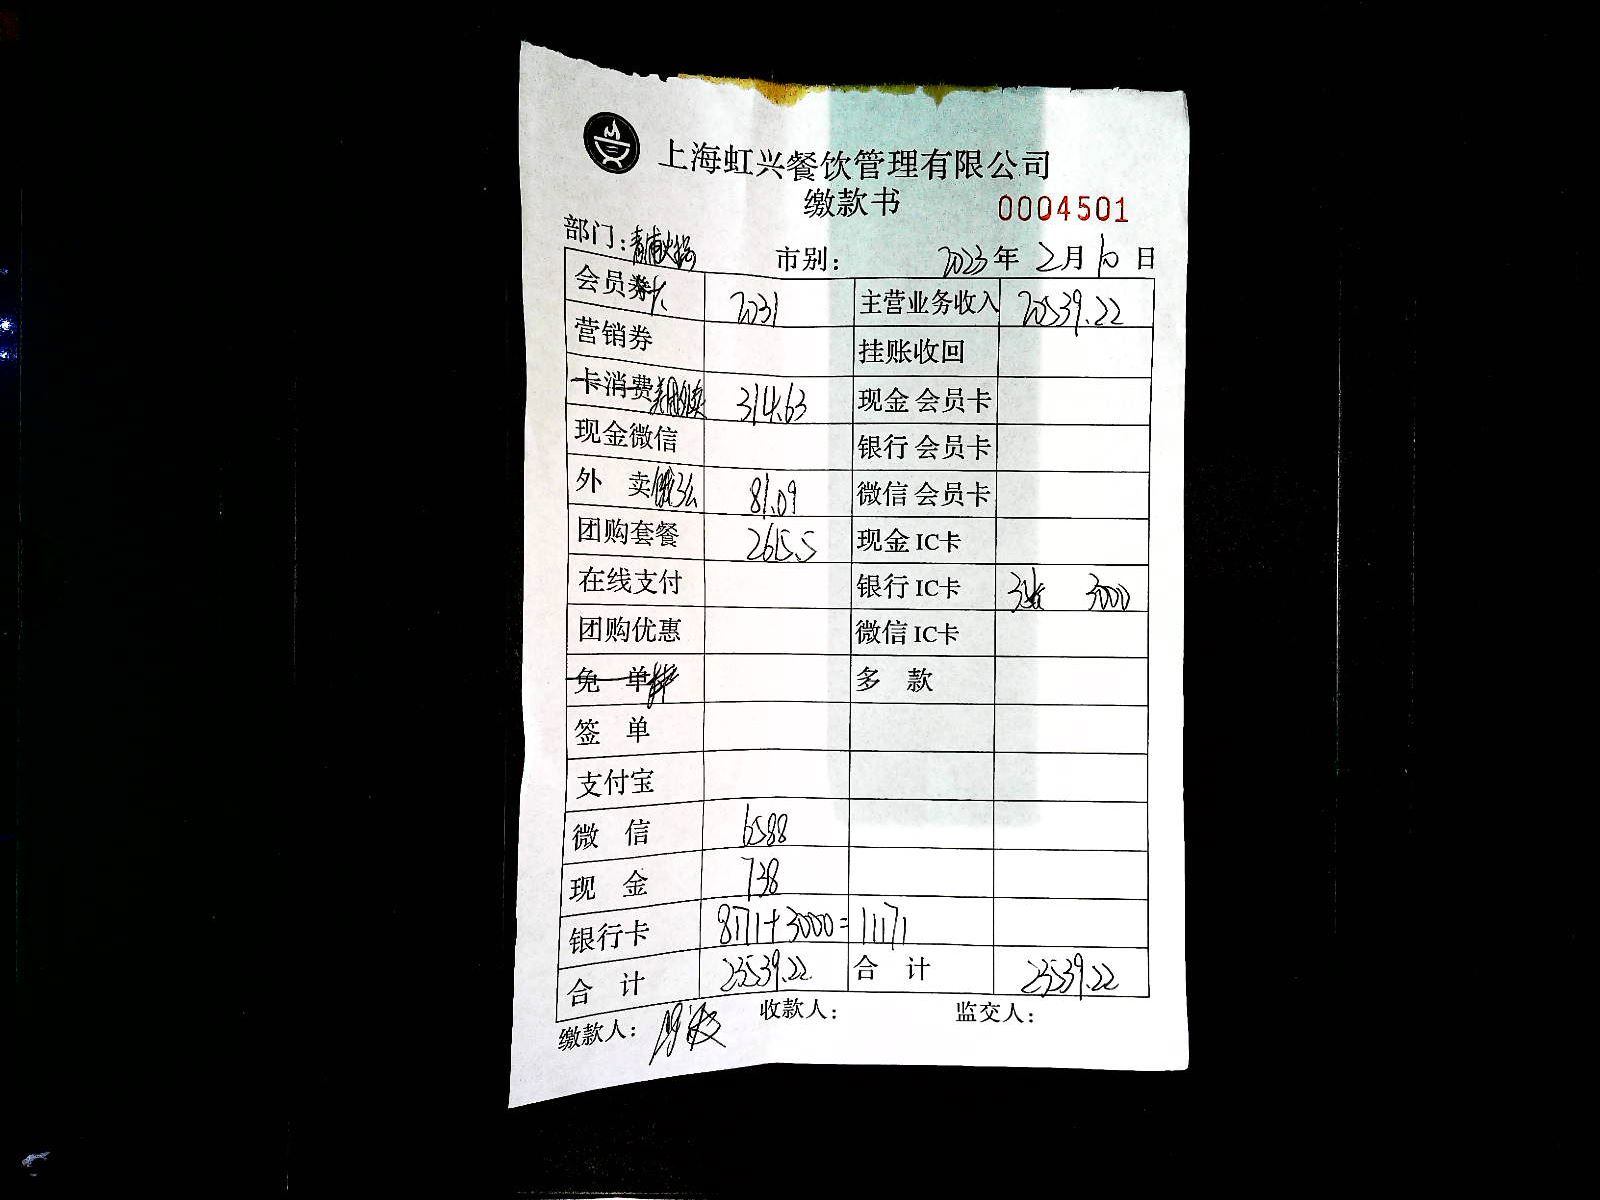 上海虹兴餐饮管理有限公司
缴款书 0004501
部门:青浦 市别: 2023年2月10日
会员卡 2031 主营业务收入 20539.22
营销券 挂账收回
卡消费美团外卖 314.63 现金会员卡
现金微信 银行会员卡
外卖饿了么 81.09 微信会员卡
团购套餐 2615.5 现金IC卡
在线支付 银行IC卡 3张 3000
团购优惠 微信IC卡
免单 多款
签单
支付宝
微信 6588
现金 738
银行卡 8171+3000=11171
合计 23539.22 合计 23539.22
缴款人: 收款人: 监交人: